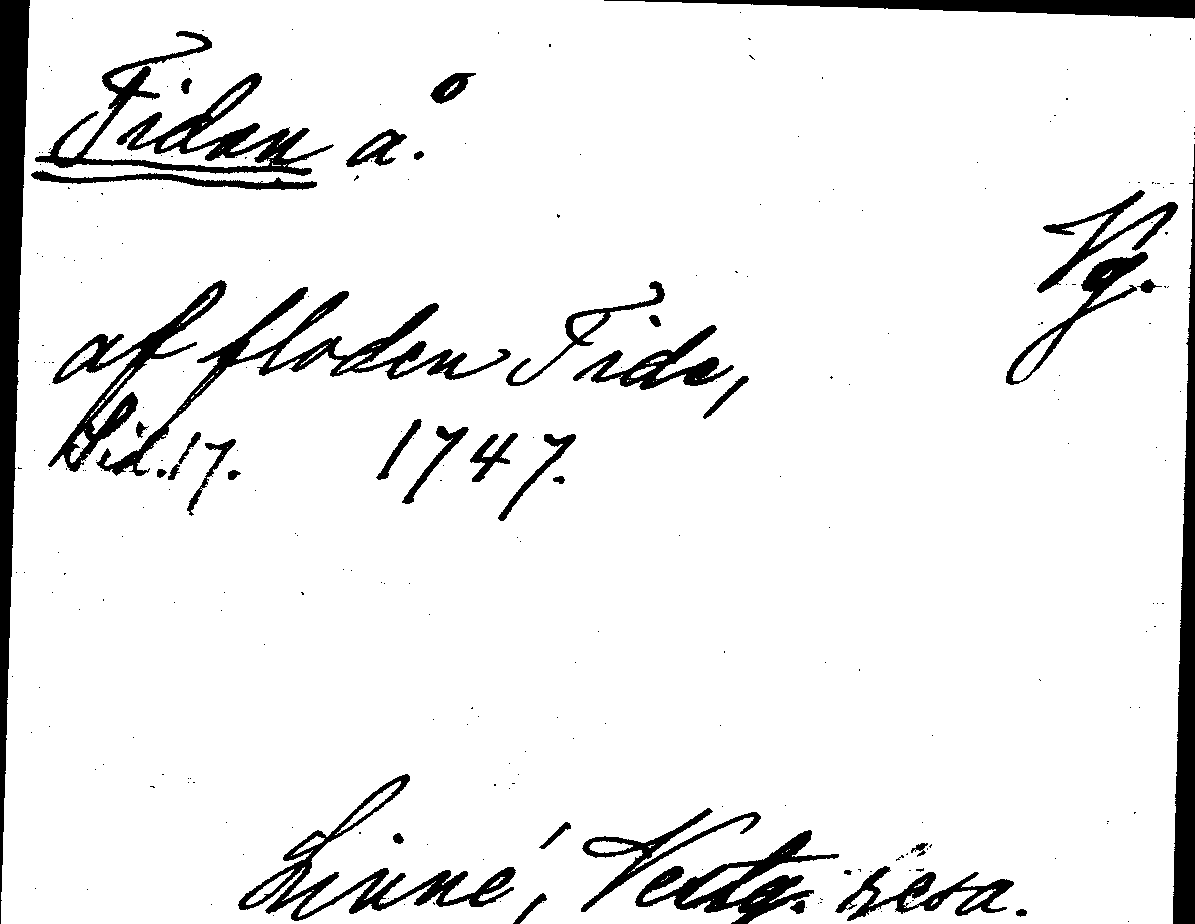 Tidan å.
Vg.
af floden Tida,
Sid. 17. 1747.
Linné, Vestg. resa.